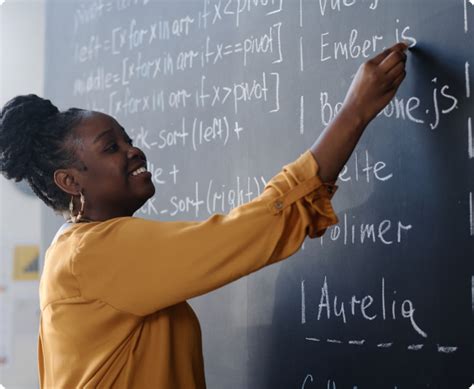 left = [x for x in arr if x<pivot]
middle = [x for x in arr if x==pivot]
[x for x in arr if x>pivot]
k_sort(left) +
+
k_sort(right)
Ember.js
bone.js
elte
olimer
Aurelia